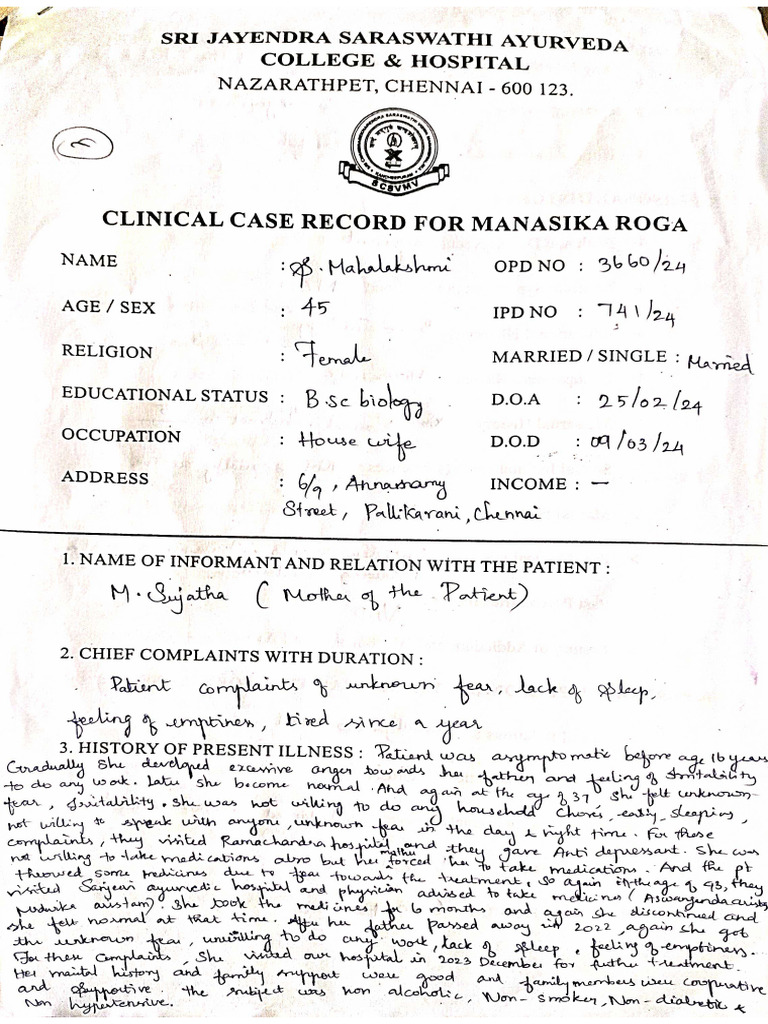 SRI JAYENDRA SARASWATHI AYURVEDA
COLLEGE & HOSPITAL
NAZARATHPET, CHENNAI - 600 123.
SCSVMV
CLINICAL CASE RECORD FOR MANASIKA ROGA
NAME : S. Mahalakshmi OPD NO : 3660/24
AGE / SEX : 45 IPD NO : 741/24
RELIGION : Female MARRIED / SINGLE : Married
EDUCATIONAL STATUS : B.sc biology D.O.A : 25/02/24
OCCUPATION : House wife D.O.D : 09/03/24
ADDRESS : 6/9, Annasamy INCOME : —
Street, Pallikarani, Chennai
1. NAME OF INFORMANT AND RELATION WITH THE PATIENT :
M. Sujatha ( Mother of the Patient)
2. CHIEF COMPLAINTS WITH DURATION :
Patient complaints of unknown fear, lack of sleep,
feeling of emptiness, tired since a year
3. HISTORY OF PRESENT ILLNESS : Patient was asymptomatic before age 16 years
Gradually she developed excessive anger towards her father and feeling of Irritability
to do any work. Later she become normal. And again at the age of 37, she felt unknown
fear, Irritability. She was not willing to do any household chores, eating, sleeping,
not willing to speak with anyone, unknown fear in the day & night time. For these
complaints, they visited Ramachandra hospital and they gave Anti depressant. She was
not willing to take medications also but her mother forced her to take medications. And the pt
throwed some medicines due to fear towards the treatment. So again in the age of 43, they
visited Sanjeevi ayurvedic hospital and physician advised to take medicines (Aswagandarista,
aristam). She took the medicines for 6 months and again she discontinued and
she felt normal at that time. After her father passed away in 2022, again she got
the unknown fear, unwilling to do any work, lack of sleep, feeling of emptiness.
For these complaints, She visited our hospital in 2023 December for further treatment.
Her maital history and family support were good and family members were cooperative
and supportive. The subject was non alcoholic, Non-smoker, Non-diabetic &
Non hypertensive.